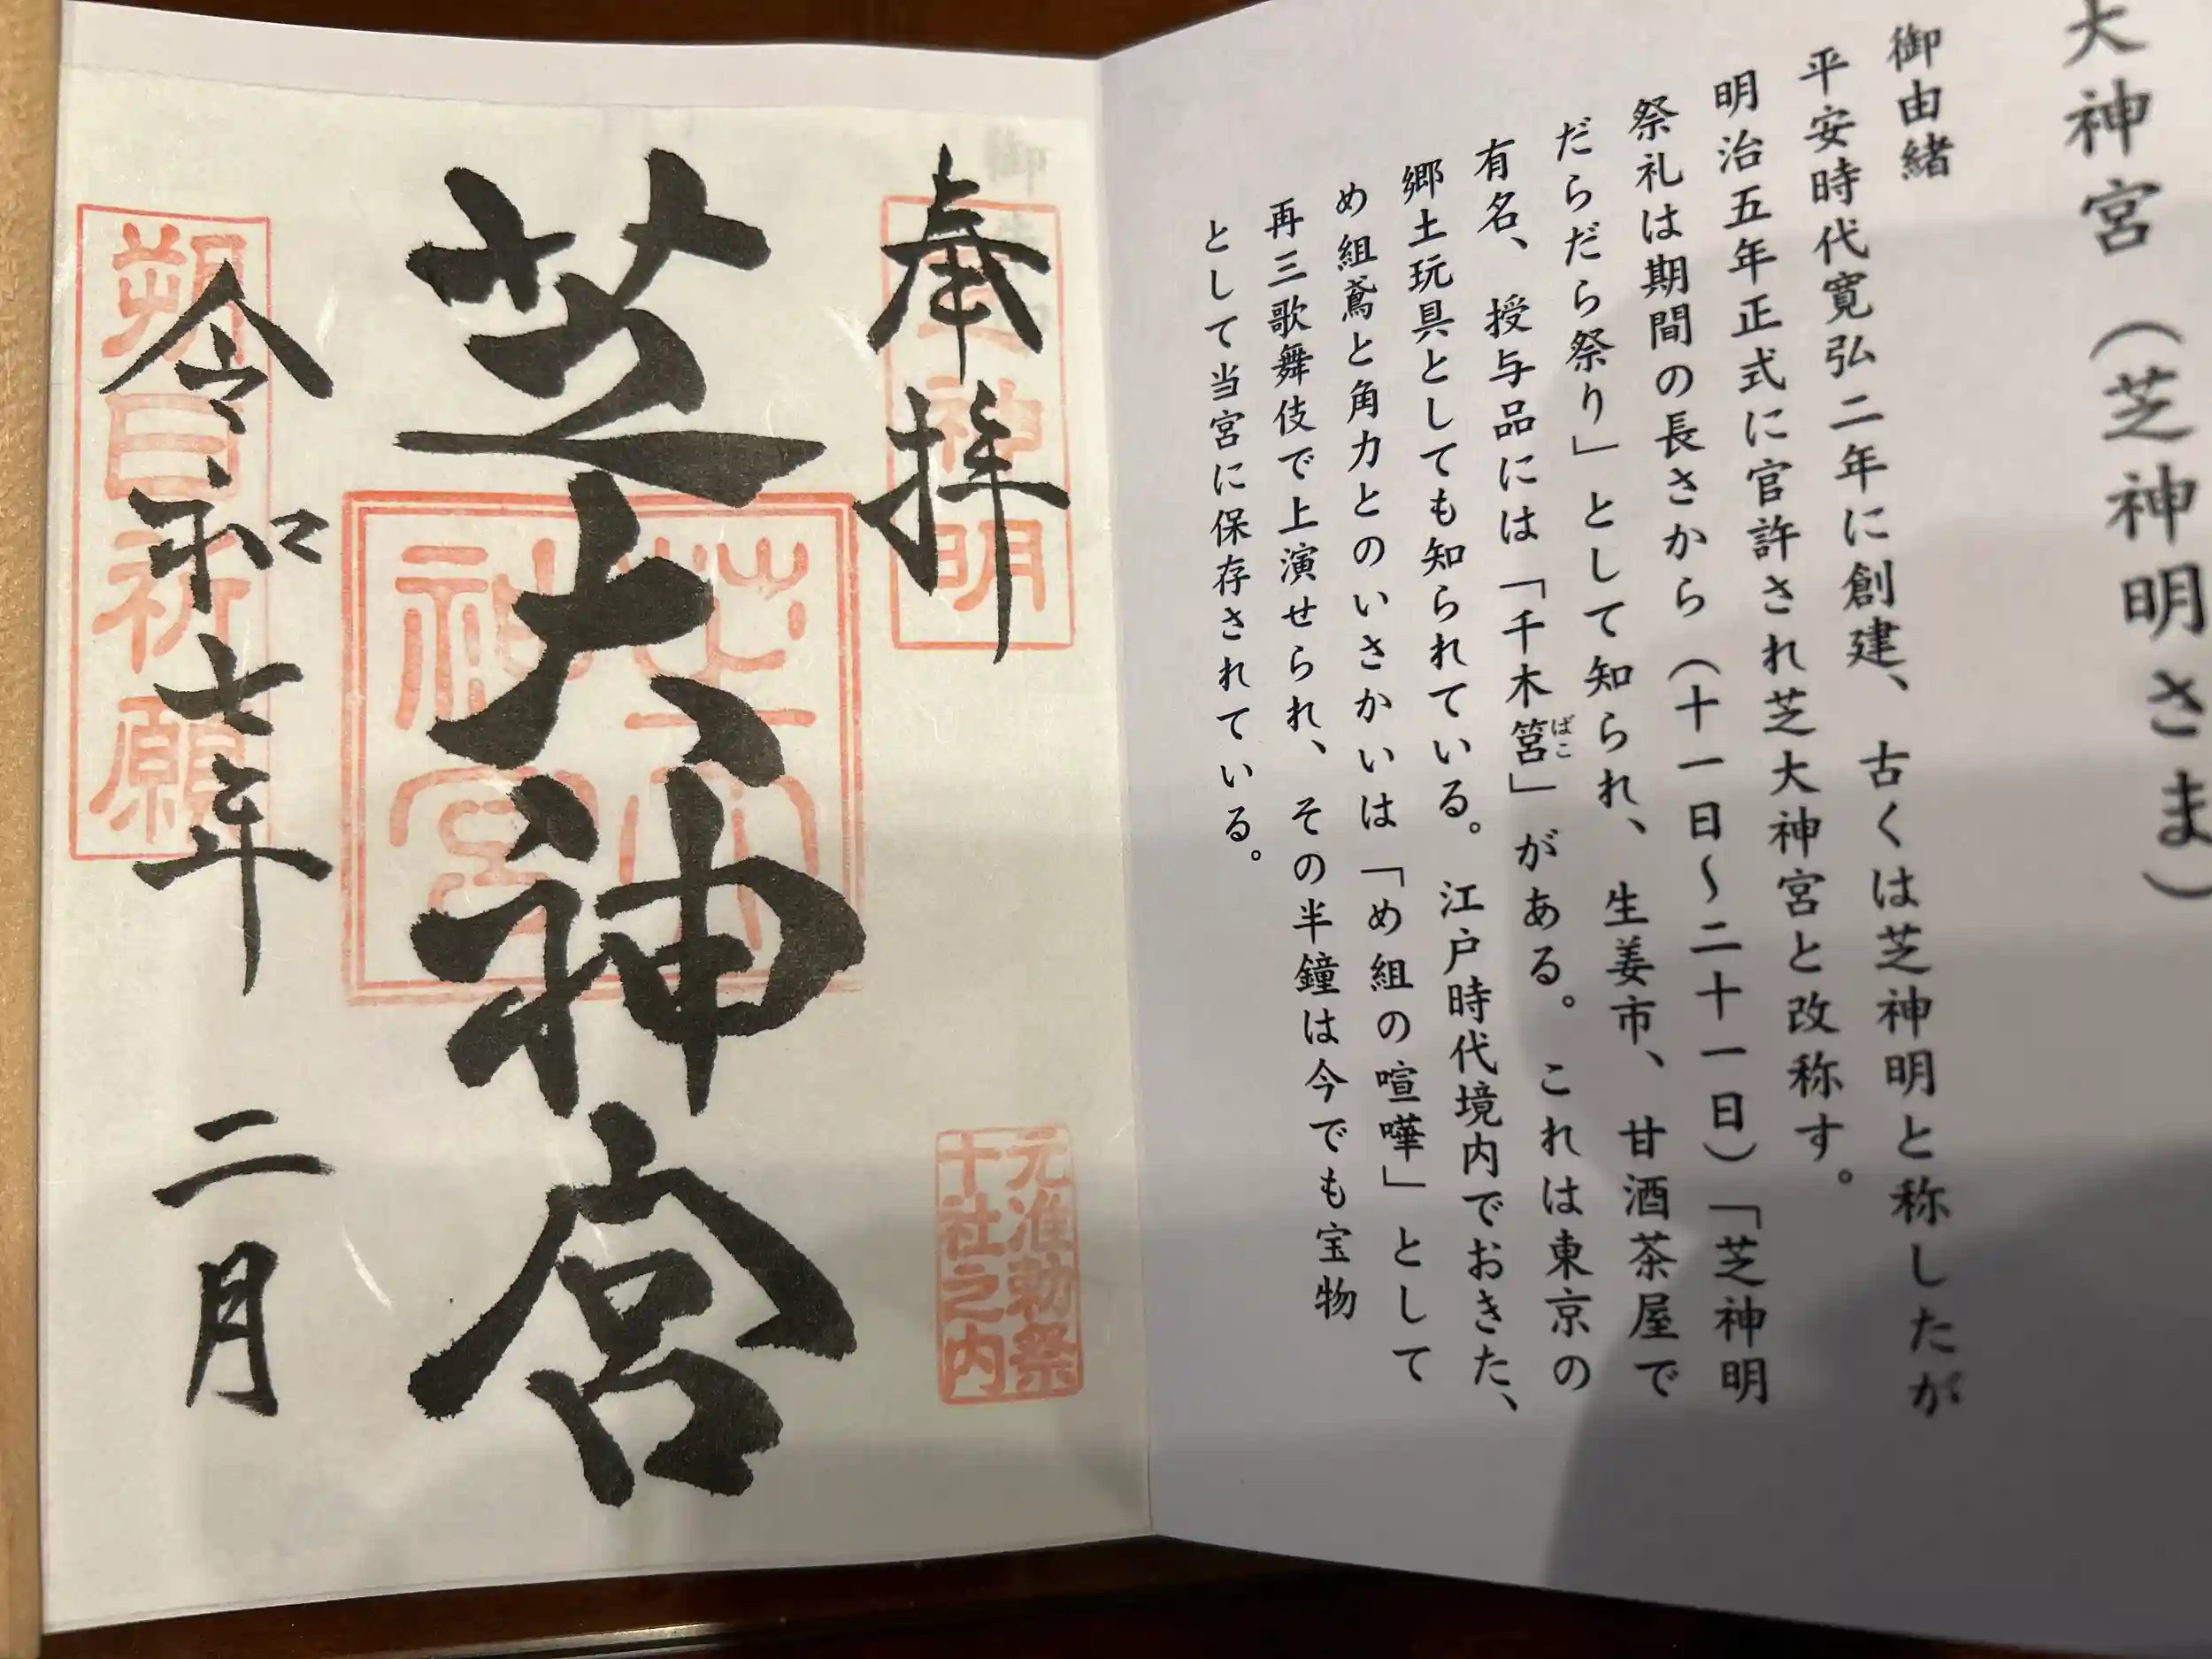 大神宮（芝神明さま）
御由緒
平安時代寛弘二年に創建、古くは芝神明と称したが
明治五年正式に官許され芝大神宮と改称す。
祭礼は期間の長さから（十一日～二十一日）「芝神明
だらだら祭り」として知られ、生姜市、甘酒茶屋で
有名、授与品には「千木筥」がある。これは東京の
ばこ
郷土玩具としても知られている。江戸時代境内でおきた、
め組鳶と角力とのいさかいは「め組の喧嘩」として
再三歌舞伎で上演せられ、その半鐘は今でも宝物
として当宮に保存されている。
奉拝
神明
元准勅祭
十社之内
芝大神宮
芝大
神宮
令和七年 二月
朔日祈願